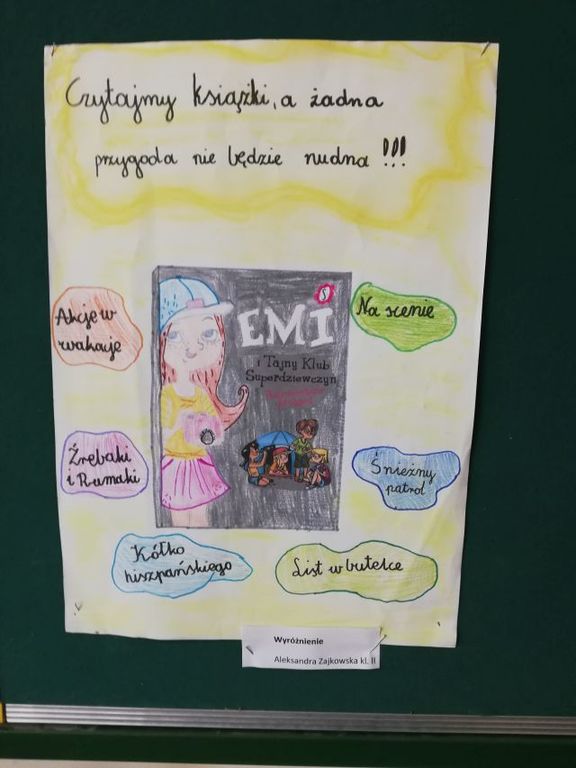 Czytajmy książki, a żadna
przygoda nie będzie nudna !!!
Akcje w
wakacje
EMI
i Tajny Klub
Superdziewczyn
Na scenie
Źrebaki
i Rumaki
Śnieżny
patrol
Kółko
hiszpańskiego
List w butelce
Wyróżnienie
Aleksandra Zajkowska kl. II